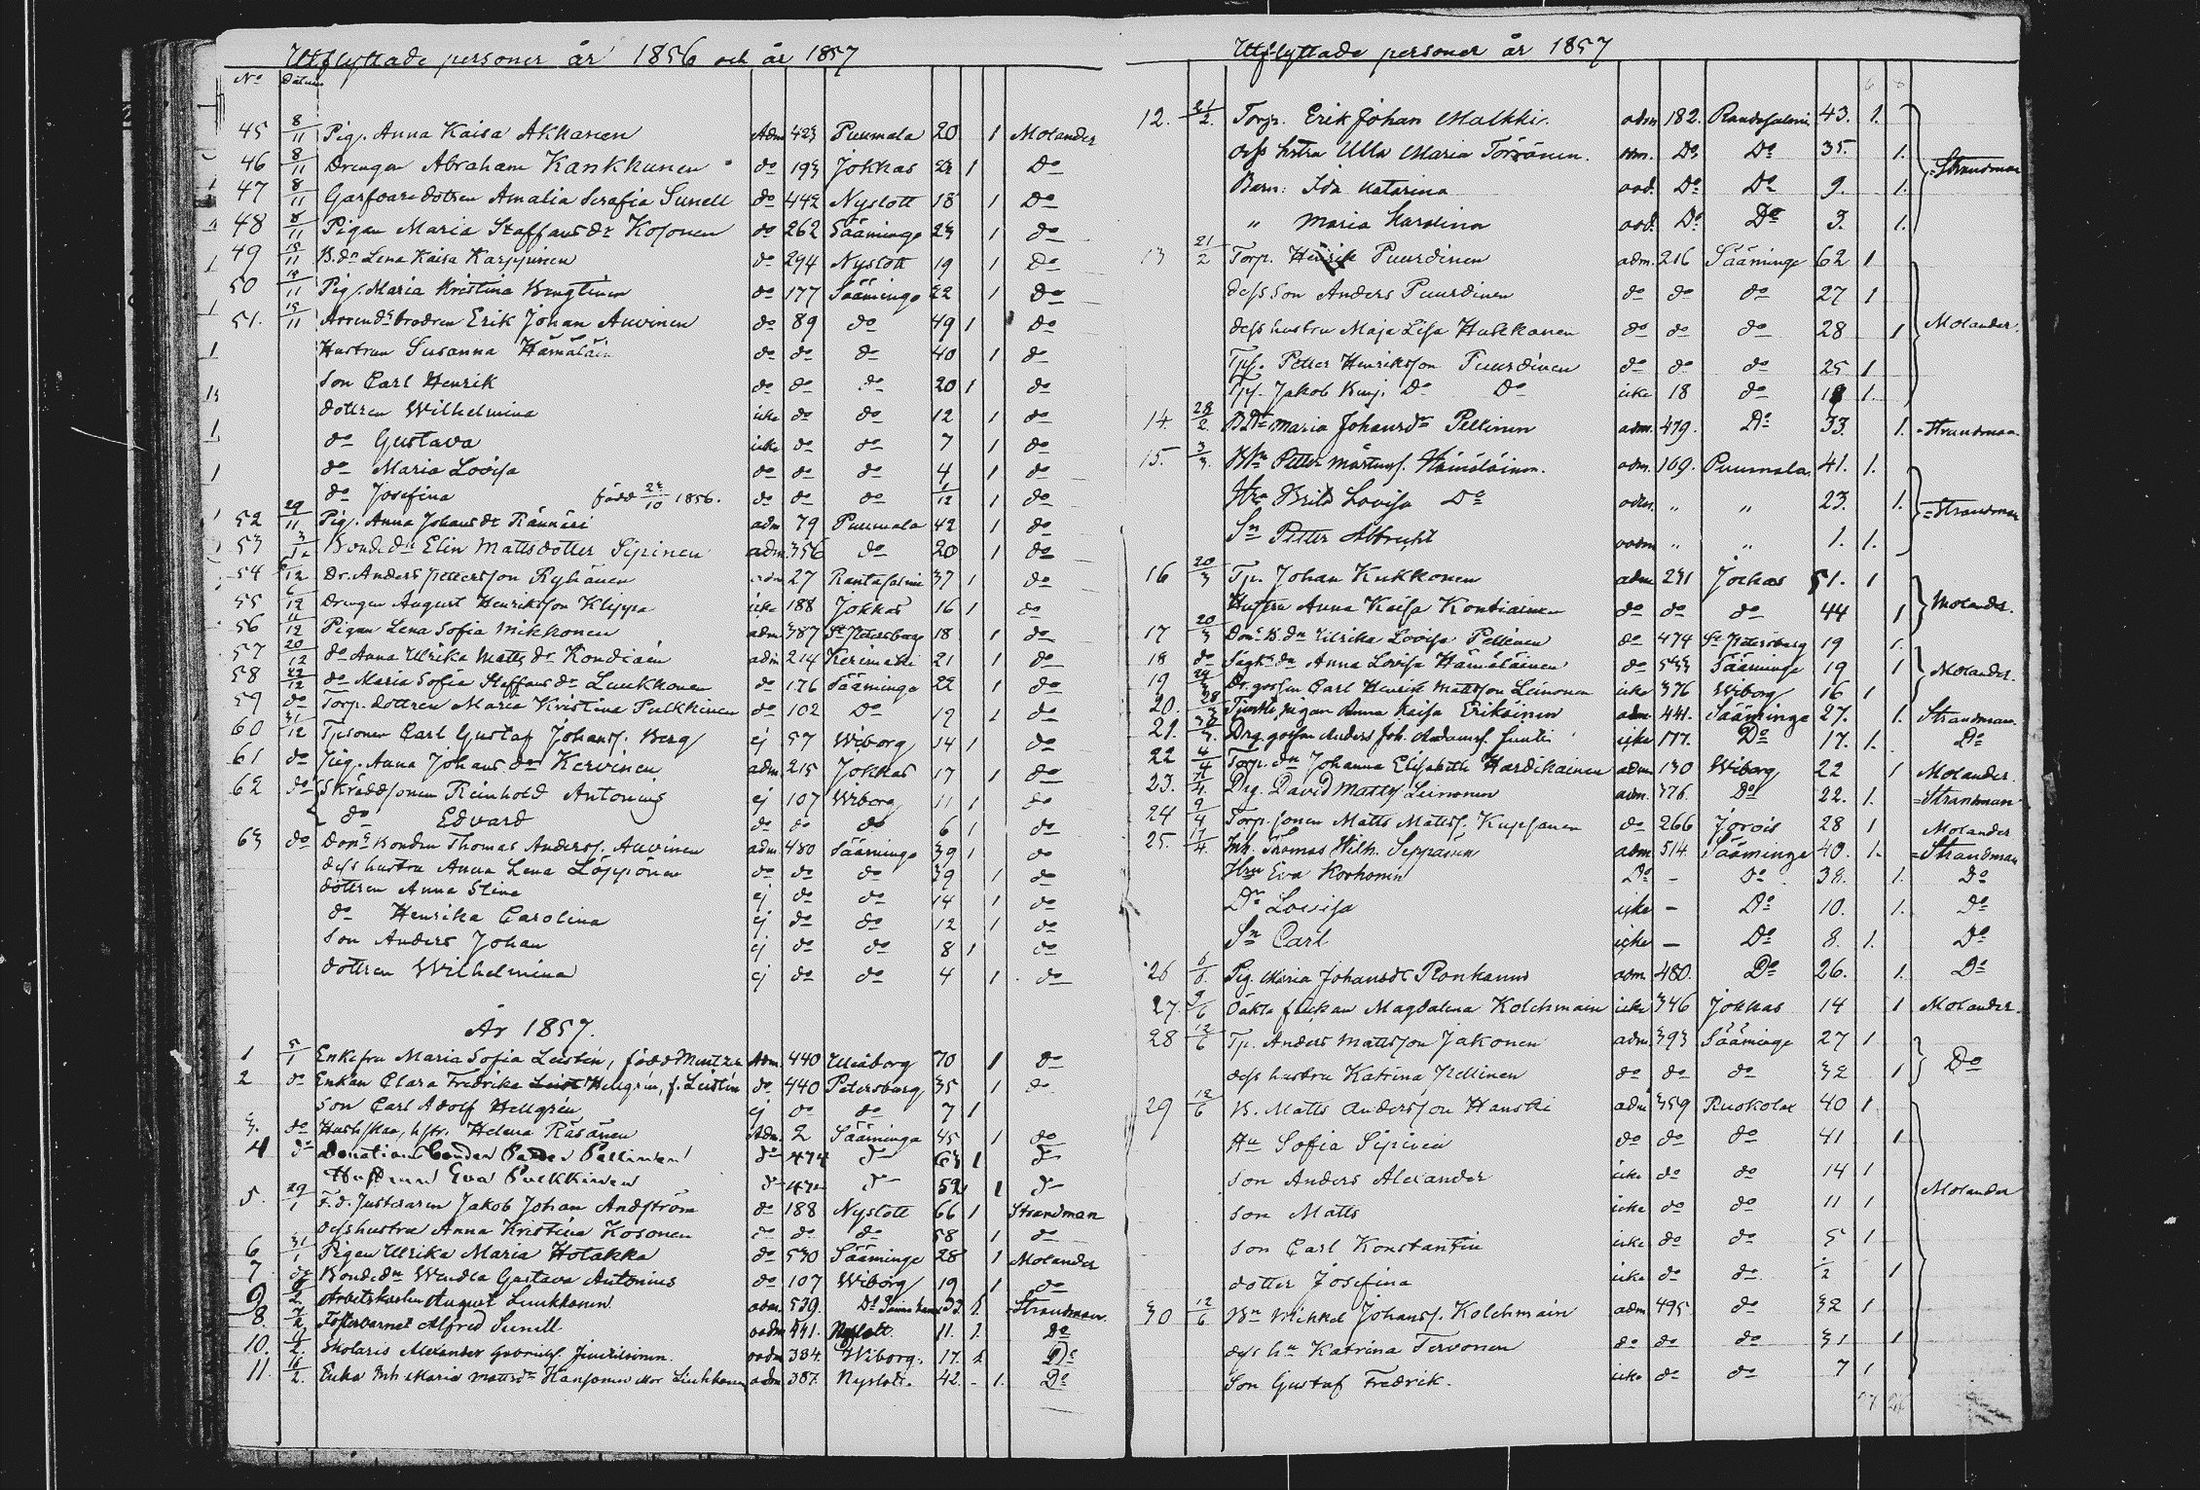 Utflyttade personer år 1856 och år 1857
No Datum
45 8/11 Pig. Anna Kaisa Akkanen Adm 423 Puumala 20 1 Molander
46 8/11 Drengen Abraham Kankkunen do 193 Jokkas 1 Do
47 8/11 dottren Amalia Serafia Sunell do 442 Nyslott 18 1 Do
48 8/11 Pigan Maria Staffansdr Kosonen do 262 Sääminge 23 1 do
49 15/11 B.dr Lena Kaisa Karppinen do 294 Nyslott 19 1 Do
50 Pig. Maria Kristina do 177 Sääminge 22 1 Do
51. 15/11 brodren Erik Johan Auvinen do 89 do 49 1 Do
Hustrun Susanna do do do 40 1 do
Son Carl Henrik do do do 20 1 do
dottren Wilhelmina icke do do 12 1 do
do Gustava icke do do 7 1 do
do Maria Lovisa do do do 4 1 do
do Josefina född 24/10 1856. do do do 1/12 1 do
52 29/11 Pig. Anna Johansdr adm 79 Puumala 42 1 do
53 Bonde dr Elin Mattsdotter Sipinen adm 356 do 20 1 do
54 Dr. Anders Pettersson Ryhänen adm 27 Rantasalmi 37 1 do
55 6/12 Drengen August Henriksson icke 188 Jokkas 16 1 do
56 11/12 Pigan Lena Sofia Mikkonen adm 387 St Petersburg 18 1 do
57 20/12 do Anna Ulrika Matts dr adm 214 Kerimäki 21 1 do
58 22/12 do Maria Sofia Staffans dr Luukkonen do 176 Sääminge 22 1 do
59 do Torp. dottren Maria Kristina Pulkkinen do 102 Do 1 do
60 31/12 Carl Gustaf Johanss. Berg ej 57 Wiborg 14 1 do
61 do Pig. Anna Johans dr Kervinen adm 215 Jokkas 17 1 do
62 do Reinhold Antonius ej 107 Wiborg 11 1 do
do Edvard do do do 6 1 do
63 do bonden Thomas Anderss. Auvinen adm 480 Sääminge 39 1 do
dess hustru Anna Lena Löppönen do do do 39 1 do
dottren Anna Stina ej do do 14 1 do
do Henrika Carolina ej do do 12 1 do
Son Anders Johan ej do do 8 1 do
dottren Wilhelmina ej do do 4 1 do
År 1857.
1 5/1 Enkefru Maria Sofia Leistén, född Adm 440 Uleåborg 70 1 do
2 do Enkan Clara Fredrika Hellgrén, f. Leistén do 440 Petersburg 35 1 do
Son Carl Adolf Hellgrén ej do do 7 1
3. do Helena Räsänen Adm 2 Sääminge 45 1 do
4 do Donations bonden Pellinen do 474 do 63 1 do
Hustrun Eva Pulkkinen do 474 do 52 1 do
5. 29/1 F.d. Justeraren Jakob Johan Andström do 188 Nyslott 66 1 Strandman
dess hustru Anna Kristina Kosonen do do do 58 1 do
6 31/1 Pigan Ulrika Maria Hotakka do 530 Sääminge 28 1 Molander
7 do Bonde dr Wendla Gustava Antonius do 107 Wiborg 19 1 do
9 August Luukkonen adm. 539. 33. 1. Strandman
8. Fosterbarnet Alfred Sunell 441. Nyslott. 11. 1. Do
10. Skolaris Alexander 384. Wiborg. 17. 1 Do
11. 16/2. Enka Inh Maria Mattsdr adm 387. Nyslott. 42. 1. Do
Utflyttade personer år 1857
12. 21/2. Torp. Erik Johan Malkki. adm 182. Randasalmi 43. 1.
dess hstru Ulla Maria Törrönen. adm. Do Do 35. 1. Strandman
Barn: Ida Katarina oad. Do Do 9. 1.
" Maria Karolina oad. Do Do 3. 1.
13 21/2 Torp. Henrik Puurdinen adm. 216 Sääminge 62 1
dess Son Anders Puurdinen do do do 27 1
dess hustru Maja Lisa Hukkanen do do do 28 1 Molander.
Petter Henriksson Puurdinen do do do 25 1
Jakob Do Do icke 18 do 1
14. 28/2. Maria Johansdr Pellinen adm. 479. Do 33. 1. Strandman
15. 3/3. Petter Hämäläinen. adm. 169. Puumala 41. 1.
Hru Brita Lovisa Do adm. " " 23. 1. Strandman
Sn Petter Albrecht oadm " " 1. 1.
16 20/3 Tp. Johan Kukkonen adm 231 Jockas 51. 1
Hustru Anna Kaisa Kontiainen do do do 44 1 Molander.
17 20/3 B. dr Ulrika Lovisa Pellinen do 474 St Petersburg 19 1.
18 do Anna Lovisa Hämäläinen do 533 Sääminge 19 1 Molander.
19 gossen Carl Henrik Mattsson Leinonen icke 376 Wiborg 16 1
20. Tjenste pigan Anna Kaisa Eriksinen adm 441. Sääminge 27. 1. Strandman
21. Drg. gossen Anders Joh. icke 177. Do 17. 1. Do
22 4/4 Torp. dr Johanna Elisabeth Hardikainen adm 130 Wiborg 22 1 Molander.
23. Drg. David Matts. Leinonen adm. 376. Do 22. 1. Strandman
24 9/4 Torp. sonen Matts Mattss. do 266 Jorois 28 1 Molander
25. 17/4. Inh. Thomas Wilh. Seppänen adm 514. Sääminge 40. 1. Strandman
Hru Eva Korhonen Do - Do. 38. 1. Do
Dr Lovisa icke - Do 10. 1. Do
Sn Carl icke - Do 8. 1. Do
26 Pig. Maria Johansdr Ronkanen adm. 480. Do 26. 1. Do
27. 9/6 flickan Magdalena Kolehmain icke 346 Jokkas 14 1 Molander.
28 12/6 Tp. Anders Mattsson Jakonen adm. 393 Sääminge 27 1
dess hustru Katrina Pellinen do do do 32 1 Do
29 12/6 B. Matts Andersson Hanski adm 359 Ruokolax 40 1
Hu Sofia Sipinen do do do 41 1
Son Anders Alexander icke do do 14 1
Son Matts icke do do 11 1 Molander
Son Carl Konstantin icke do do 5 1
dotter Josefina icke do do 1/2 1
30 12/6 Bn Mikkel Johanss. Kolehmain adm 495 do 32 1
dess hu Katrina Tervonen do do do 31 1
Son Gustaf Fredrik. icke do do 7 1